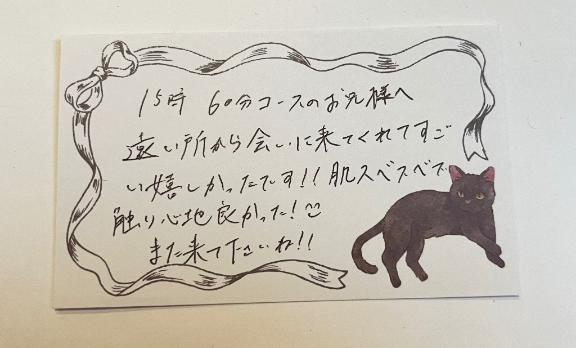 15時 60分コースのお兄様へ
遠い所から会いに来てくれてすご
い嬉しかったです!! 肌スベスベで
触り心地良かった!
また来て下さいね!!